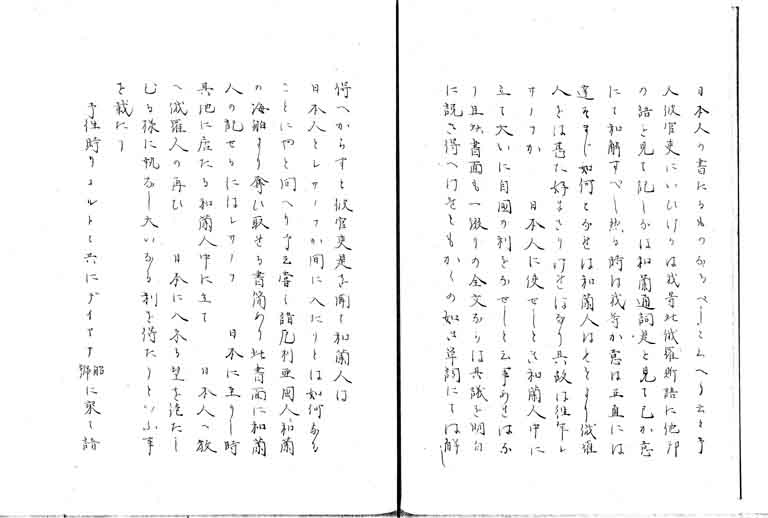 日本人の書たるものなるべしと云へり云と予
人彼官吏にいひけるは我等此俄羅斯語に他邦
の語と見て記しかは和蘭通詞是と見て已か意
にて和解すべし然る時は我等か意は正直には
達せまじ如何となせは和蘭人はもとより俄羅
人をは甚た好まさりけせはなり其故は往年レ
サーノフか 日本人に使せしとき和蘭人中に
立て大いに自国の利をなせしと云事あせはな
り且此書面も一綴りの全文ならは其議を明白
に説き得へけせともかくの如き単詞にては解
得へからすと彼官吏是を聞て和蘭人は
日本人とレサーノフか間に入たりとは如何なる
ことにやと問へり予云嘗し諳厄利亜国人和蘭
の海舶より奪い取せる書簡あり此書面に和蘭
人の記せるにはレサーノフ 日本に至りし時
其地に居たる和蘭人中に立て 日本人へ教
へ俄羅人の再ひ 日本に入来る望を絶たし
むる様に執なし大いなる利を得たりといふ事
を載たり
予往時リコルトと共にデイアナ船に乗て諳